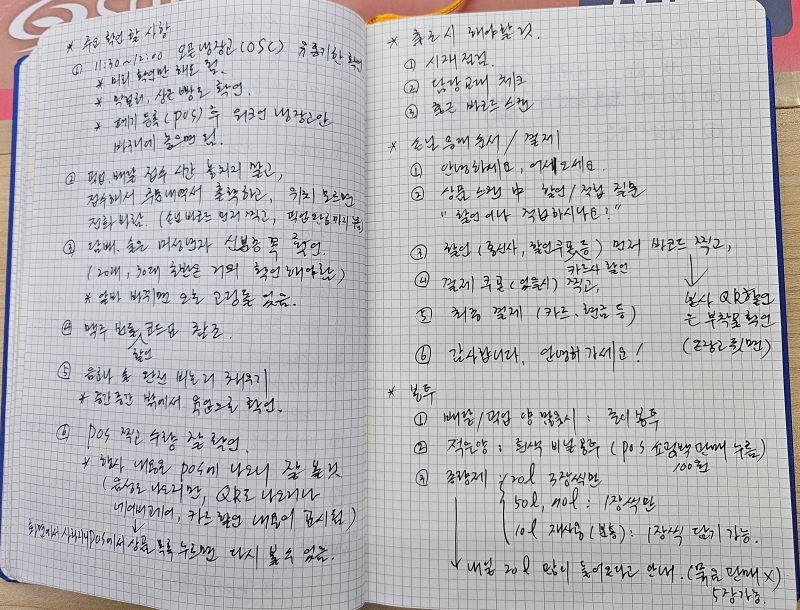 * 주요 확인 할 사항
① 11:30~12:00 오픈냉장고(OSC) 유통기한 확인
* 미리 확인만 해도 됨.
* 막걸리, 상온 빵도 확인.
* 폐기 등록 (POS) 후 워크인 냉장고안
바구니에 놓으면 됨.
② 픽업, 배달 접수 시간 놓치지 말고,
접수해서 주문내역서 출력하고, 위치 모르면
전화바람. (손님 바코드 먼저 찍고, 픽업완료까지
③ 담배, 술은 미성년자 신분증 꼭 확인.
(20대, 30대 초반은 거의 확인해야함)
* 알바 바뀌면 오는 고딩들 있음.
④ 맥주 번들 할인 코드표 참조.
⑤ 음료나 술 완전 비는거 채우기
* 중간중간 밖에서 육안으로 확인.
⑥ POS 찍고 수량 잘 확인.
* 행사 내용은 POS에 나오니 잘 볼것
(음성도 나오지만, QR로 나오거나
네이버페이, 카드할인 내용이 표시됨)
화면에서 사라지나 POS에서 상품 목록 누르면 다시 볼 수 있음.
* 출근시 해야할것.
① 시재점검.
② 담당교대 체크
③ 출근 바코드 스캔
* 손님 응대 순서 / 결제
① 안녕하세요, 어서오세요.
② 상품 스캔 中 할인/적립 질문
"할인이나 적립하시나요?"
③ 할인 (통신사, 할인쿠폰 등) 먼저 바코드 찍고,
④ 결제 쿠폰 (있을시) 찍고, 카드사 할인
본사 QR할인
은 부착물 확인
(냉장고 뒷면)
⑤ 최종 결제 (카드, 현금 등)
⑥ 감사합니다, 안녕히가세요!
* 봉투
① 배달/픽업 양 많을시 : 종이봉투
② 적은양 : 흰색 비닐봉투 (POS 쇼핑백 판매 누름)
100원
③ 종량제 : 20l 3장씩만
50l, 10l : 1장씩만
10l 재사용(보통) : 1장씩 담기 가능.
내일 20l 많이 들어온다고 안내. (묶음 판매 X)
5장가능.